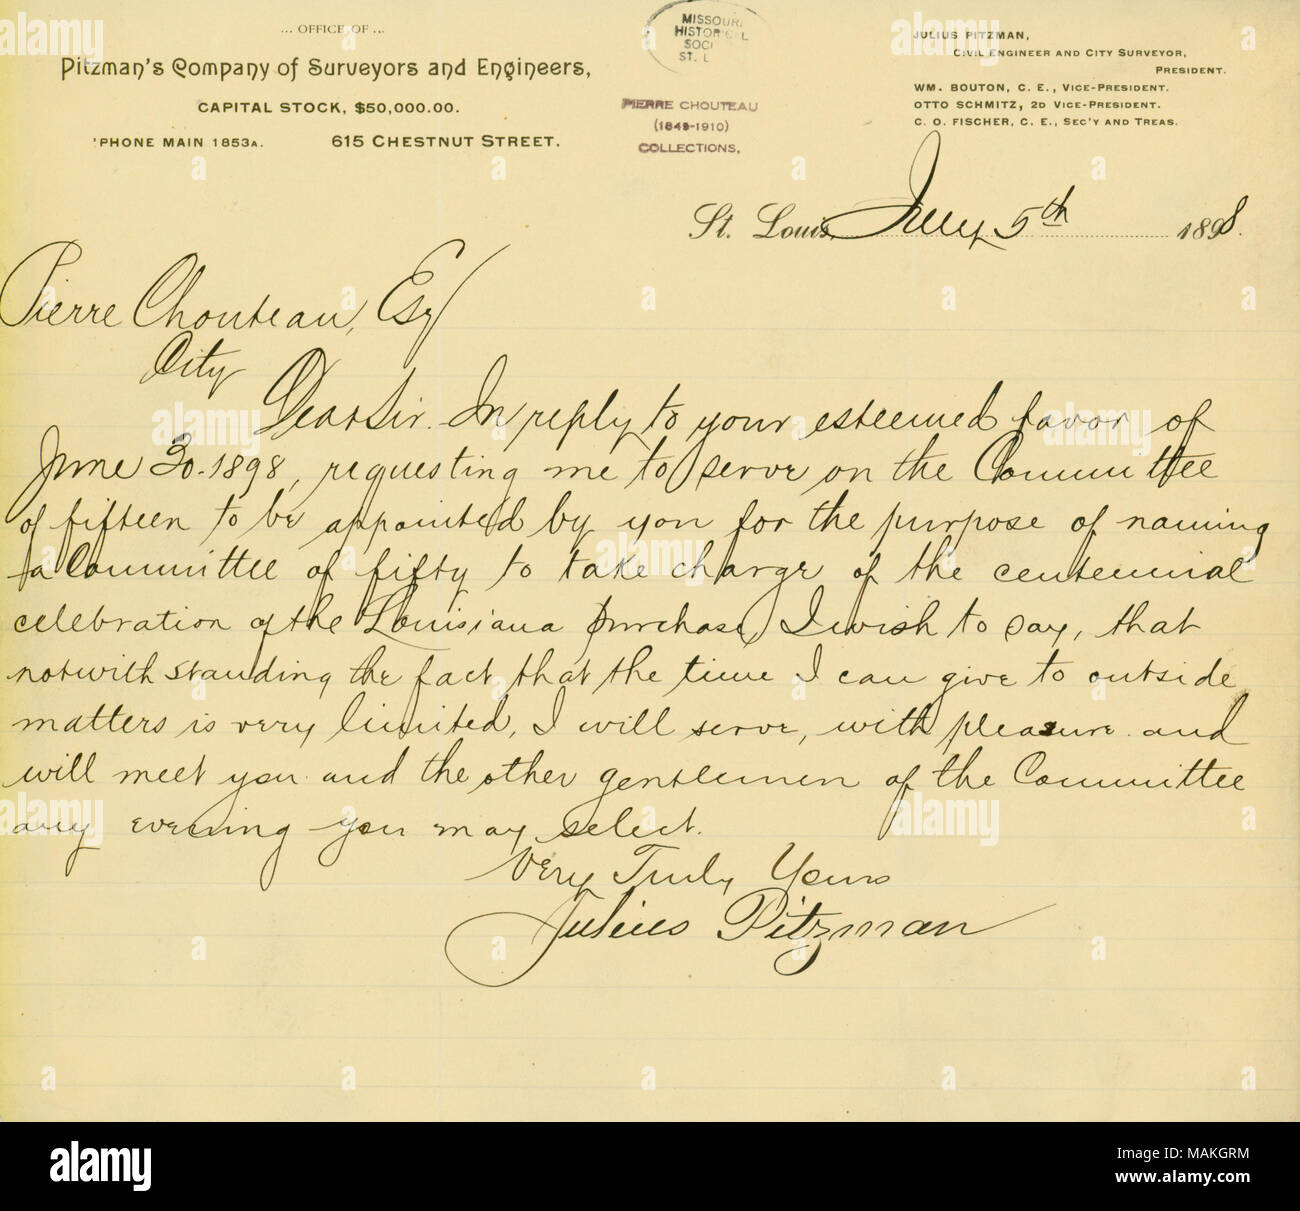 ... OFFICE OF ...
Pitzman's Company of Surveyors and Engineers,
CAPITAL STOCK, $50,000.00.
'PHONE MAIN 1853A. 615 CHESTNUT STREET.
MISSOURI
HISTORICAL
SOCI
ST. L
PIERRE CHOUTEAU
(1849-1910)
COLLECTIONS,
JULIUS PITZMAN,
CIVIL ENGINEER AND CITY SURVEYOR,
PRESIDENT.
WM. BOUTON, C. E., VICE-PRESIDENT.
OTTO SCHMITZ, 2D VICE-PRESIDENT.
C. O. FISCHER, C. E., SEC'Y AND TREAS.
St. Louis, July 5th 1898.
Pierre Chouteau, Esq
City
Dear Sir. In reply to your esteemed favor of
June 30-1898, requesting me to serve on the Committee
of fifteen to be appointed by you for the purpose of naming
a Committee of fifty to take charge of the centennial
celebration of the Louisiana purchase, I wish to say, that
notwithstanding the fact that the time I can give to outside
matters is very limited, I will serve, with pleasure and
will meet you and the other gentlemen of the Committee
any evening you may select.
Very Truly Yours
Julius Pitzman
alamy
a
alamy
Image ID: MAKGRM
www.alamy.com